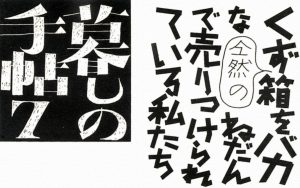 くず箱をバカ
な全然のねだん
で売りつけられ
ている私たち
暮しの
手帖7